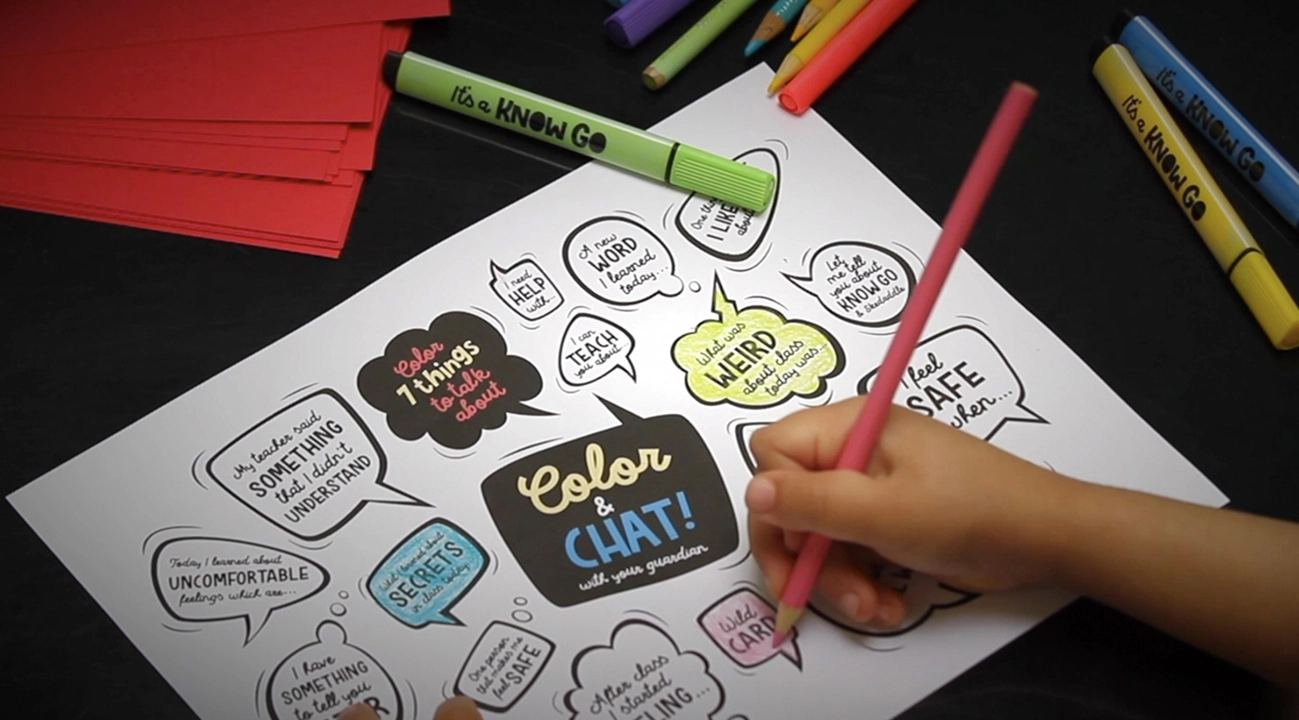 It's a KNOW GO
It's a KNOW GO
It's a KNOW GO
One
I LIKE
about
A new
WORD
I learned
today...
I need
HELP
with...
Let
me tell
you about
KNOW GO
& Skedaddle
I can
TEACH
you about
What was
WEIRD
about class
today was...
Color
7 things
to talk
about
I feel
SAFE
when...
My teacher said
SOMETHING
that I didn't
UNDERSTAND
Color
&
CHAT!
with your guardian
Today I learned about
UNCOMFORTABLE
feelings which are...
What I learned about
SECRETS
in class today
Wild
CARD
One person
that makes me
feel SAFE
I have
SOMETHING
to tell you
After class
I started